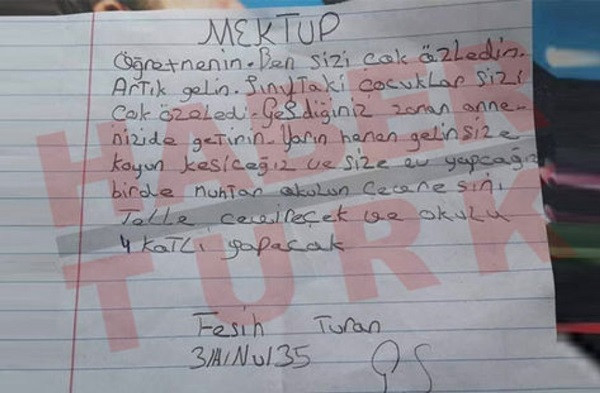 MEKTUP
Öğretmenin. Ben sizi cok özledin.
Artık gelin. Sınıftaki çocuklar sizi
Cok özeledi. Geldiğiniz zanan anne-
nizide getirin. Yarın henen gelin size
koyun kesiceğiz ve size ev yapcağız
birde nuhtar okulun Cevresini
Telle cevirecek ve okulu
4 katlı yapacak
Fesih Turan
3/A/No/35
HABER
TURK